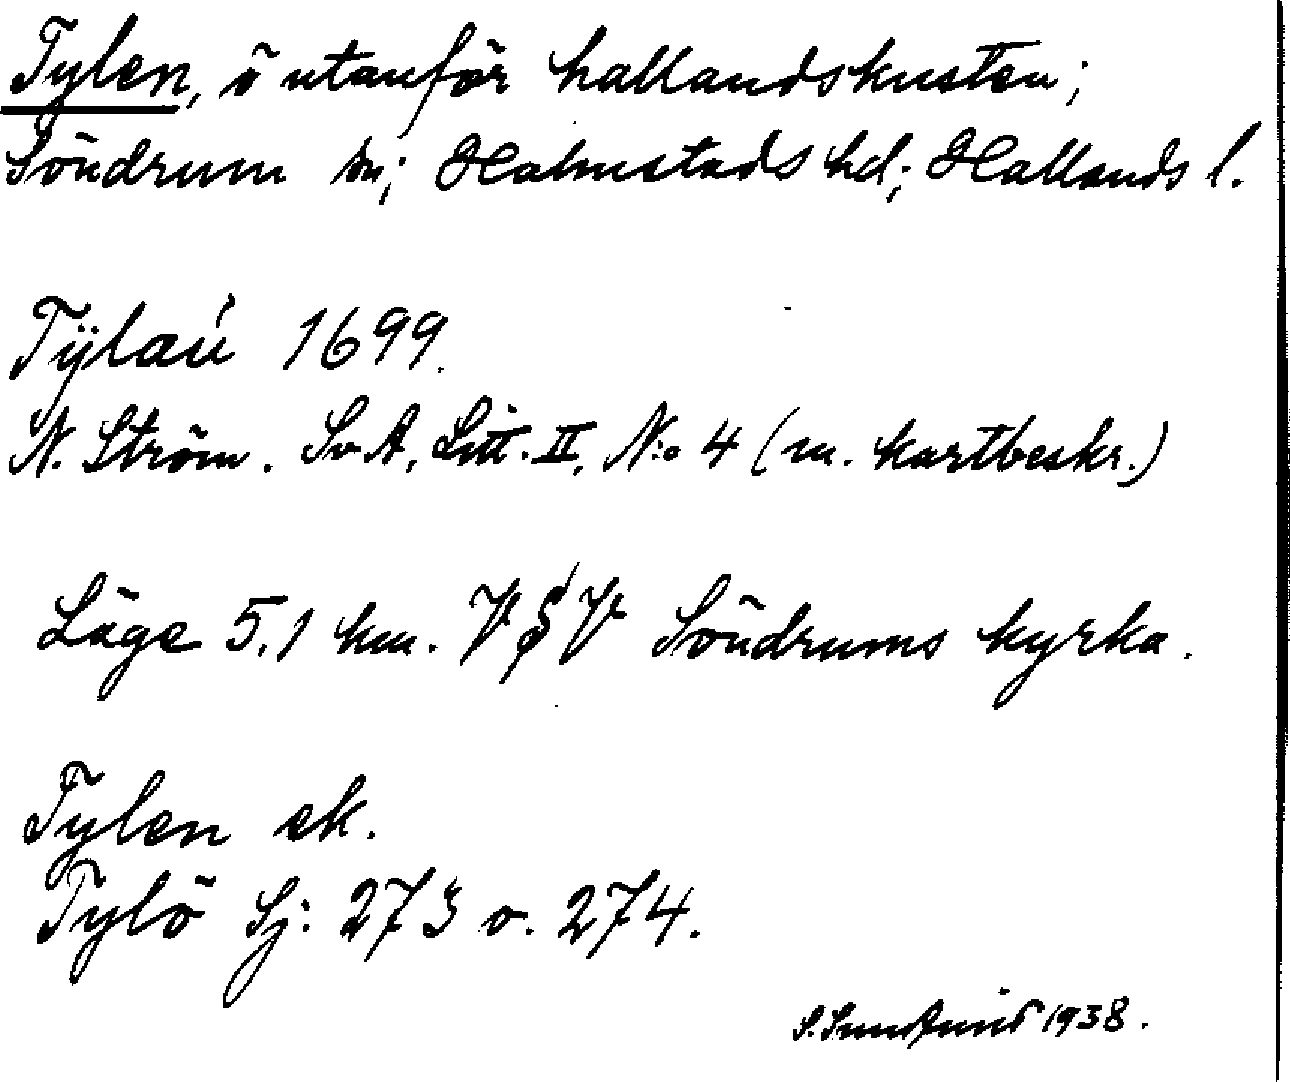 Tylen, ö utanför hallandskusten;
Söndrum sn; Halmstads hd; Hallands l.
Tÿlaú 1699.
N. Ström. Sv. A, Litt. II, N:o 4 (m. kartbeskr.)
Läge 5,1 km. V § V Söndrums kyrka.
Tylen ek.
Tylö Sj: 273 o. 274.
1938.